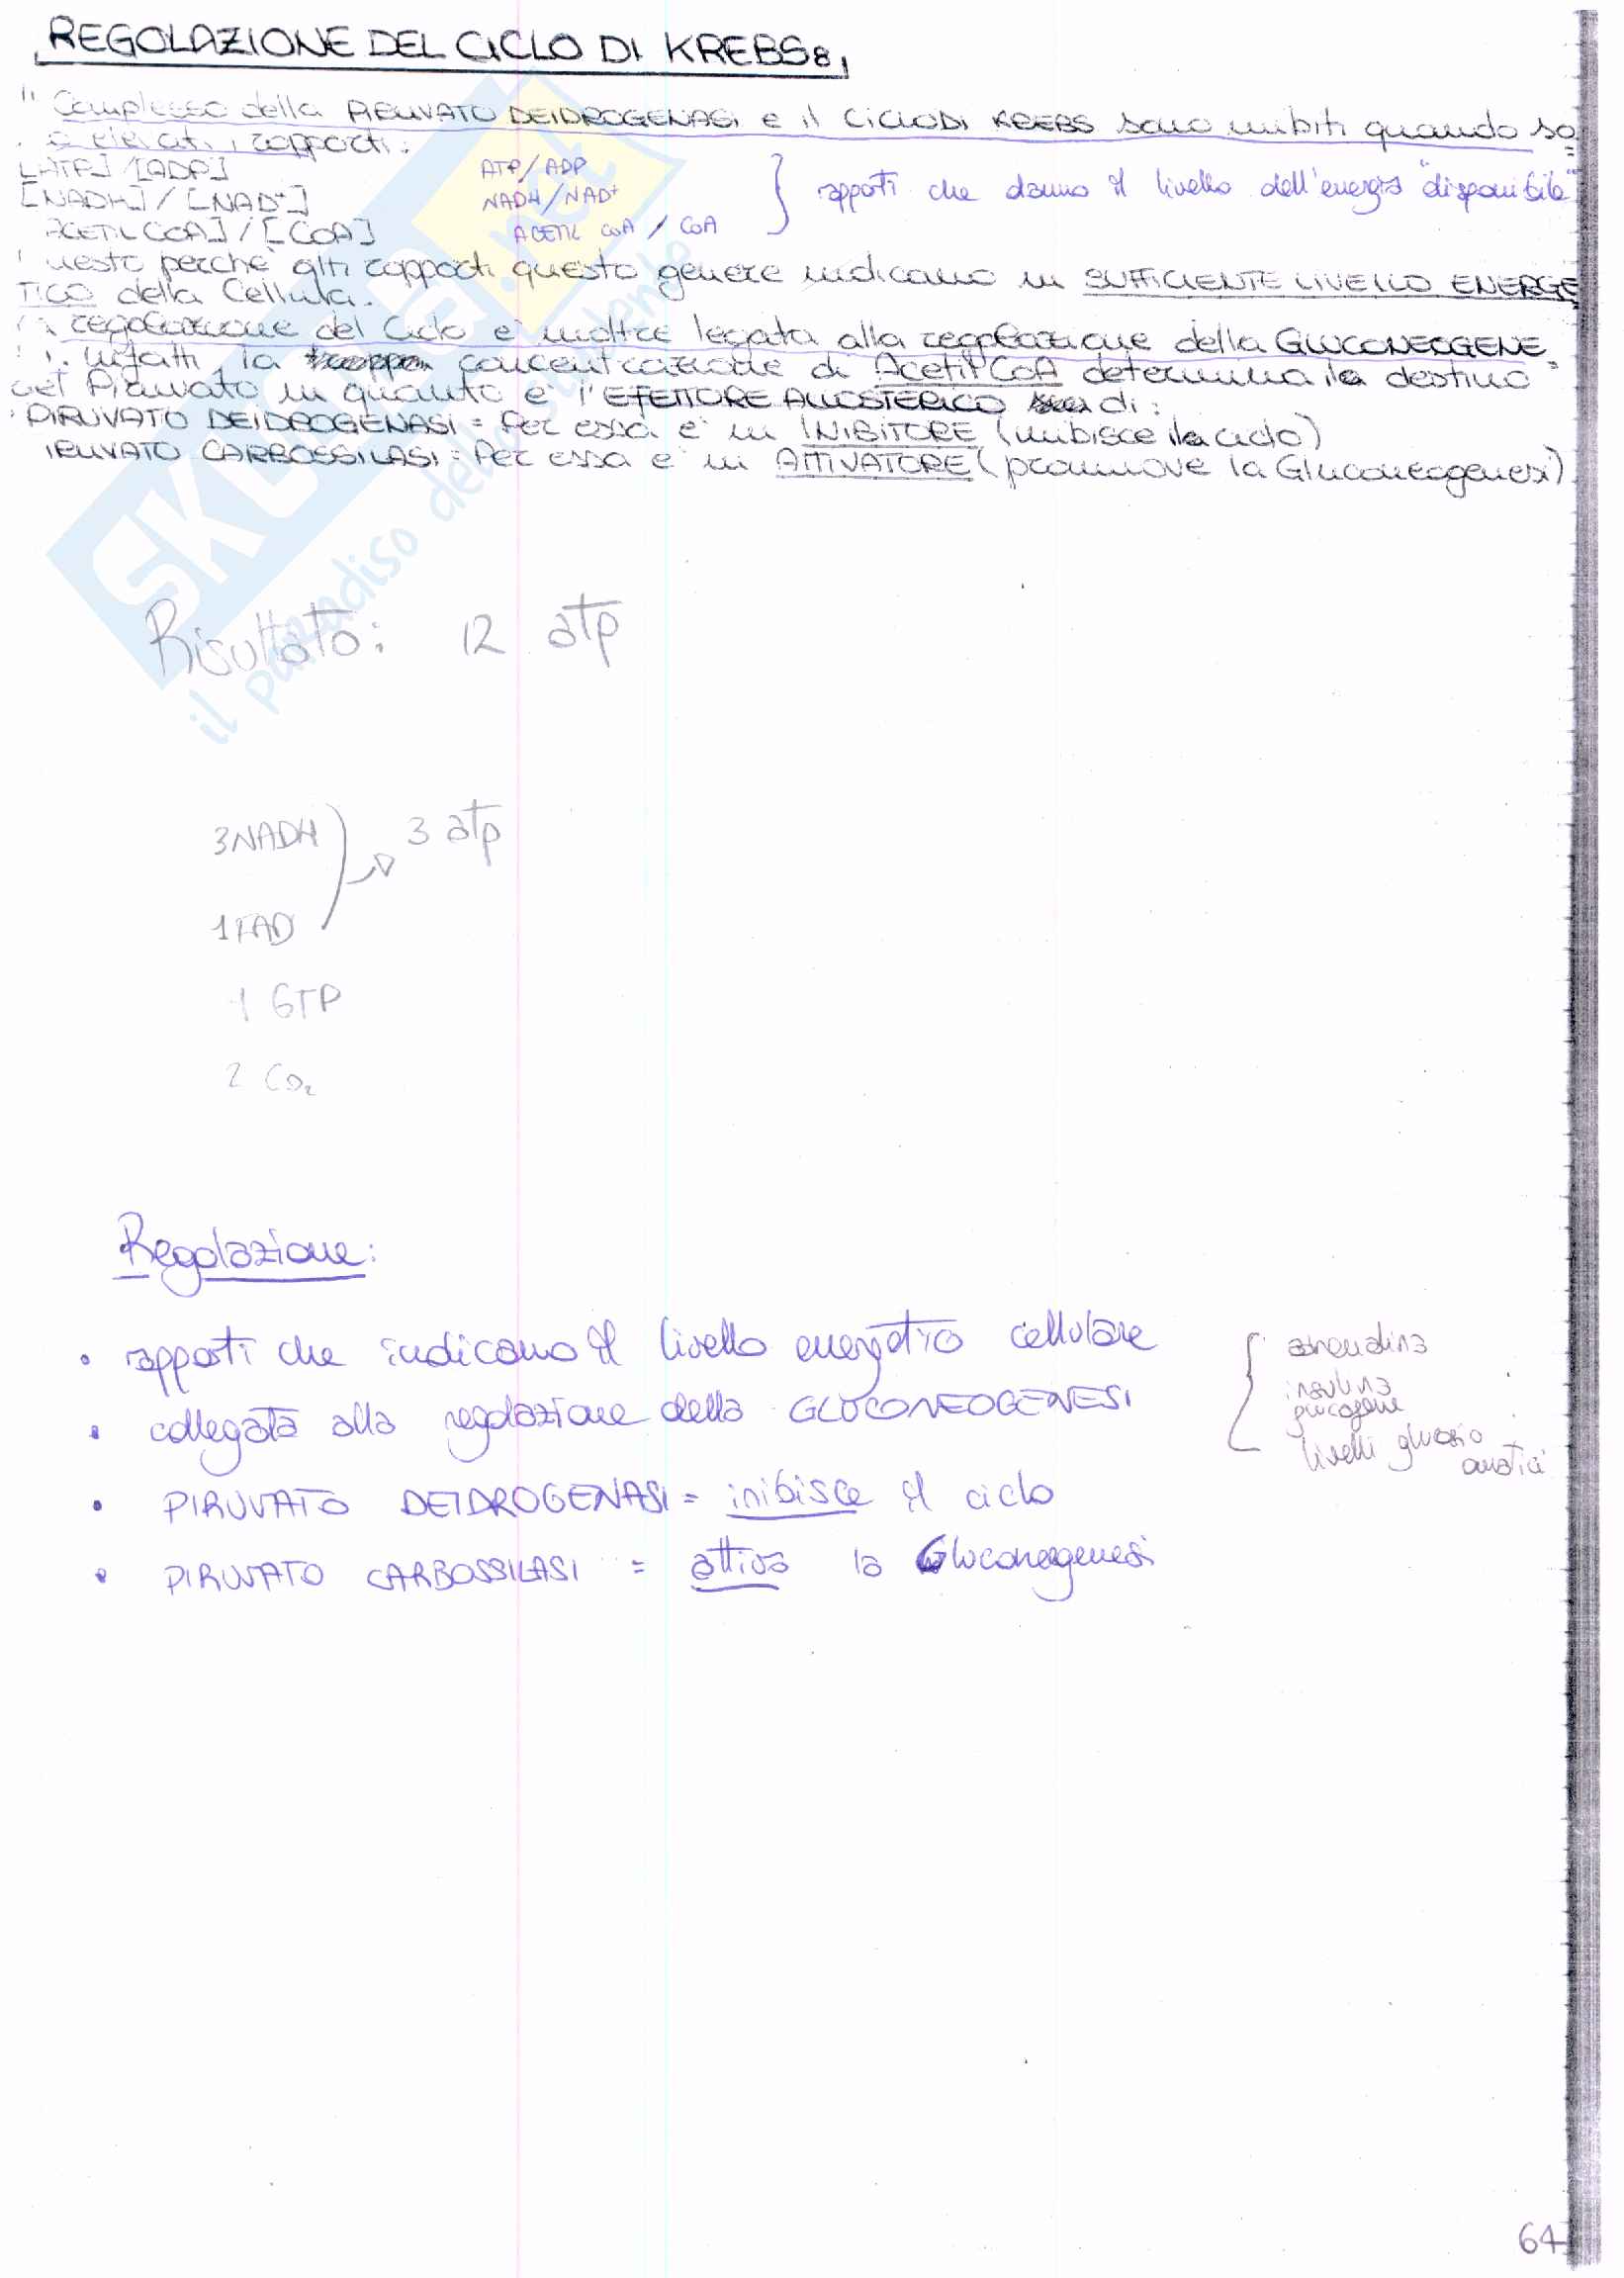 REGOLAZIONE DEL CICLO DI KREBS:
Complesso della PIRUVATO DEIDROGENASI e il CICLO DI KREBS sono inibiti quando so
elevati i rapporti:
[ATP] / [ADP] ATP/ADP
[NADH] / [NAD+] NADH/NAD+ rapporti che danno il livello dell'energia "disponibile"
ACETIL CoA] / [CoA] ACETIL CoA / CoA
uesto perchè alti rapporti questo genere indicano un SUFFICIENTE LIVELLO ENERGE
TICO della Cellula.
regolazione del Ciclo è inoltre legata alla regolazione della GLUCONEOGENE
infatti la concentrazione di Acetil CoA determina il destino
del Piruvato in quanto è l'EFFETTORE ALLOSTERICO di:
PIRUVATO DEIDROGENASI = Per essa è un INIBITORE (inibisce il ciclo)
IRUVATO CARBOSSILASI = Per essa è un ATTIVATORE (promuove la Gluconeogenesi)
SKUOLA.net
il paradiso dello studente
Risultato: 12 atp
3NADH 3 atp
1FAD
1 GTP
2 CO2
Regolazione:
• rapporti che indicano il livello energetico cellulare
• collegata alla regolazione della GLUCONEOGENESI
• PIRUVATO DEIDROGENASI = inibisce il ciclo
• PIRUVATO CARBOSSILASI = attiva la Gluconeogenesi
adrenalina
insulina
glucagone
livelli glucosio
ematici
64